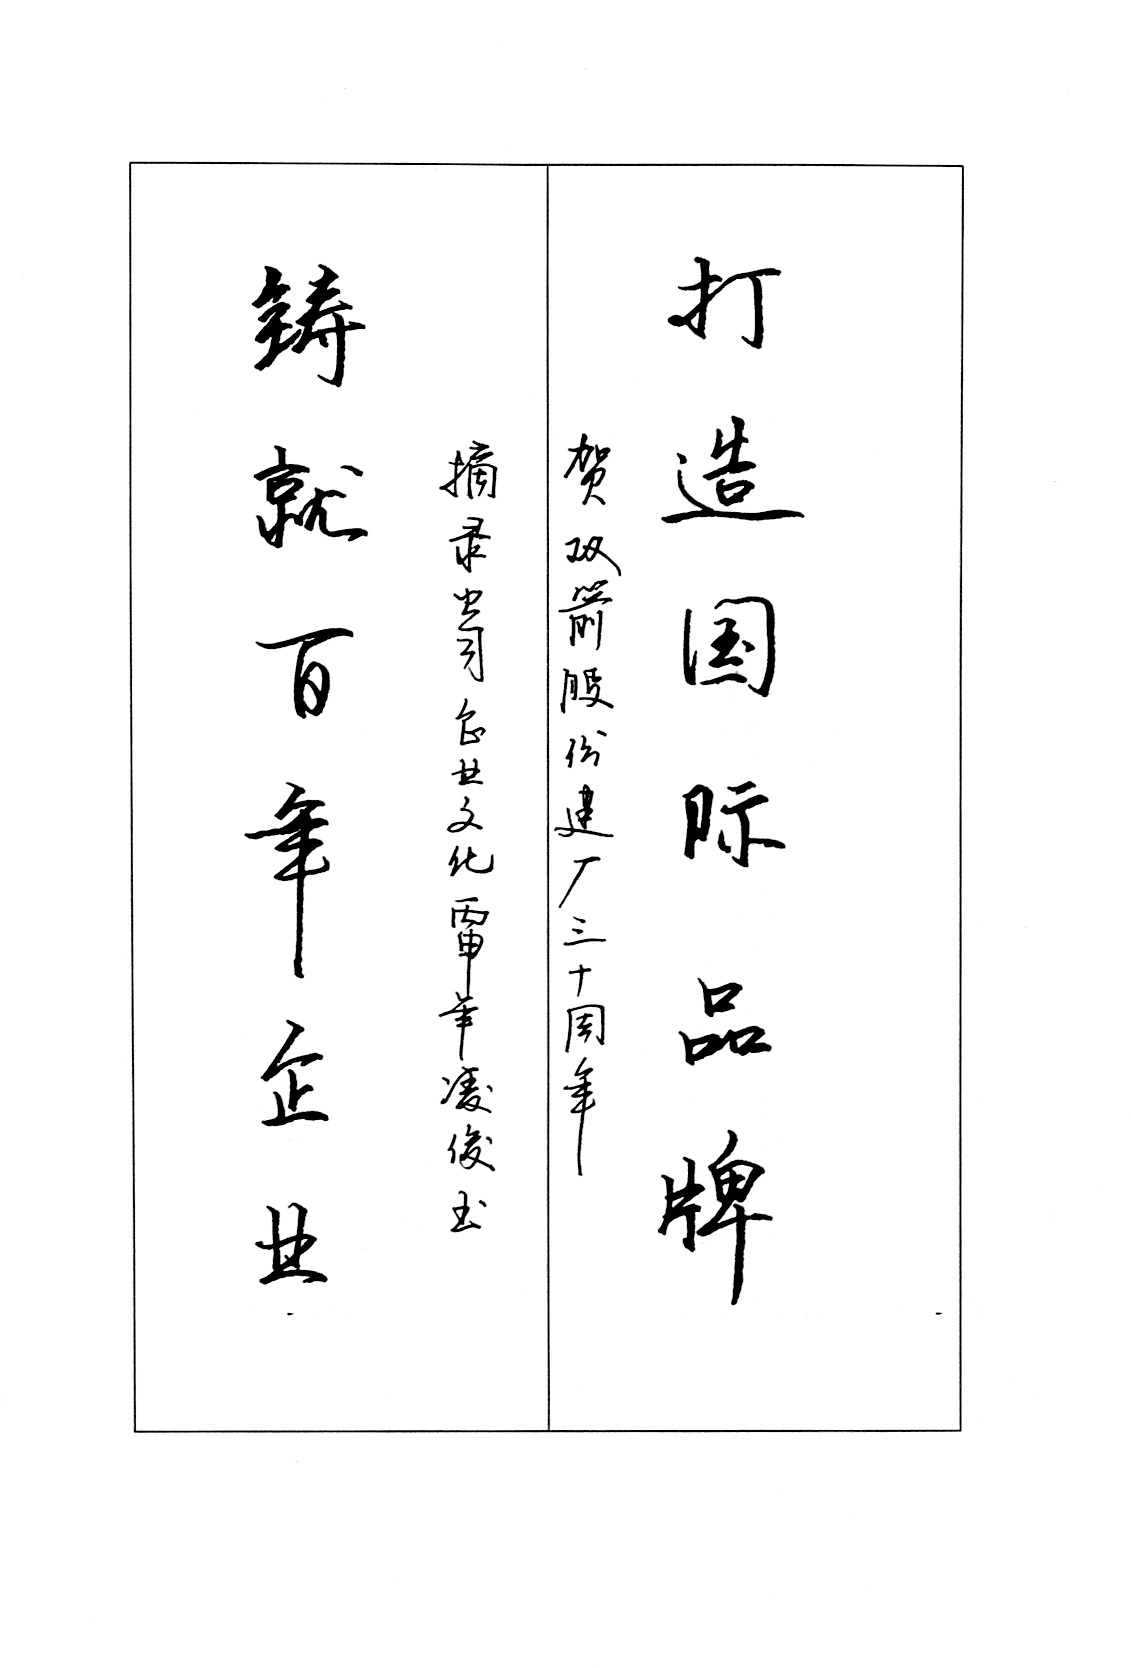 打造国际品牌
贺双箭股份建厂三十周年
摘录公司企业文化丙申年凌俊玉
铸就百年企业